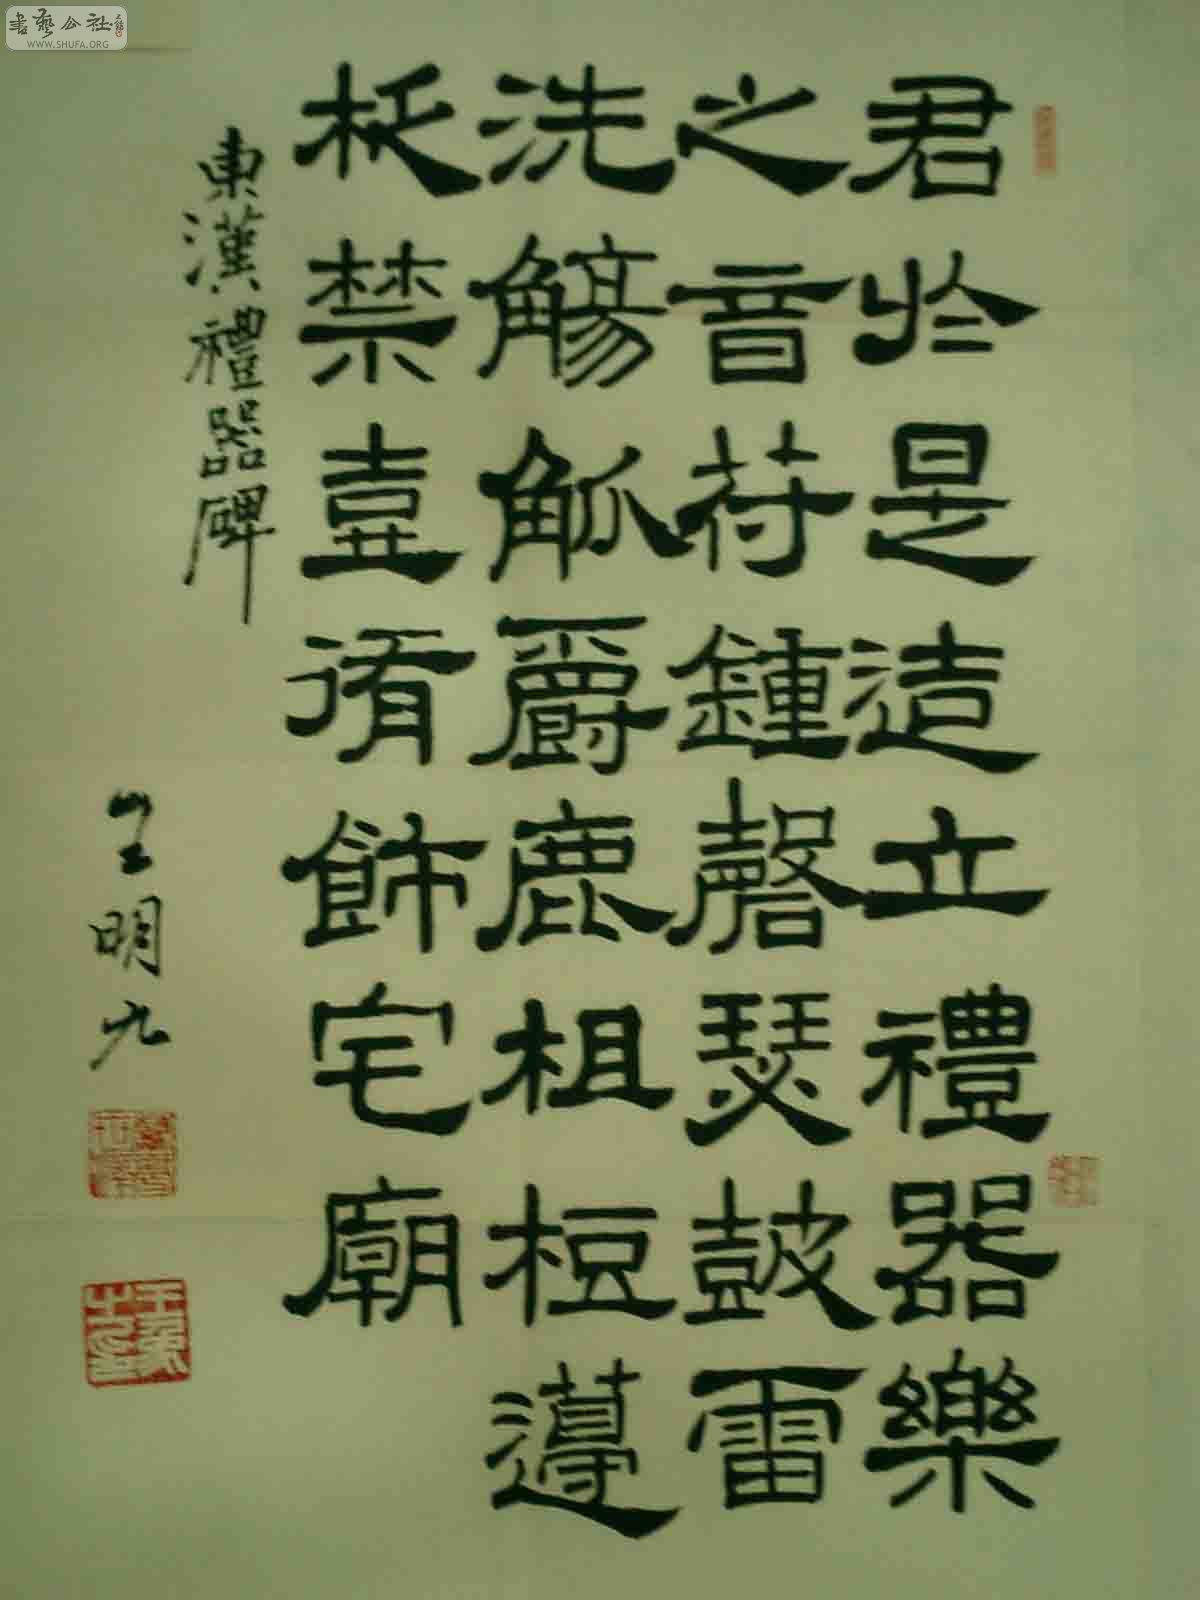 書藝公社
WWW.SHUFA.ORG
君於是造立禮器樂
之音苻鍾磬瑟鼓雷
洗觴觚爵鹿柤梪籩
柉禁壺脩飾宅廟
東漢禮器碑
王明九